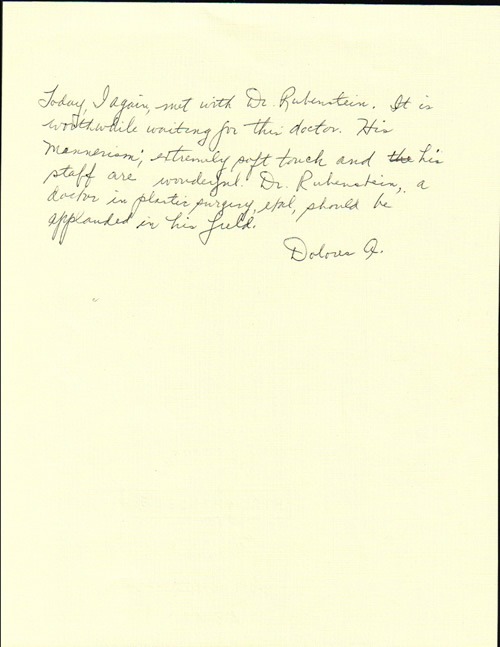 Today, I again, met with Dr. Rubenstein. It is
worthwhile waiting for this doctor. His
mannerism, extremily soft touch and the his
staff are wonderful. Dr. Rubenstein, a
doctor in plastic surgery, etal, should be
applauded in his field.
Dolores A.